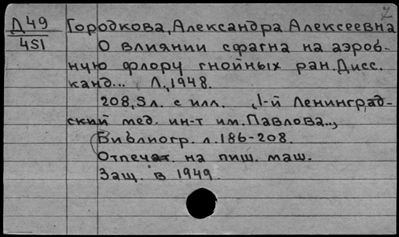 Д49
451
Городкова, Александра Алексеевна
О влиянии сфагна на аэроб-
ную флору гнойных ран. Дисс.
канд... Л., 1948.
208, 5 л. с илл. , 1-й Ленинград-
ский мед. ин-т им. Павлова..,
Библиогр. л. 186-208.
Отпечат. на пиш. маш.
Защ. в 1949.